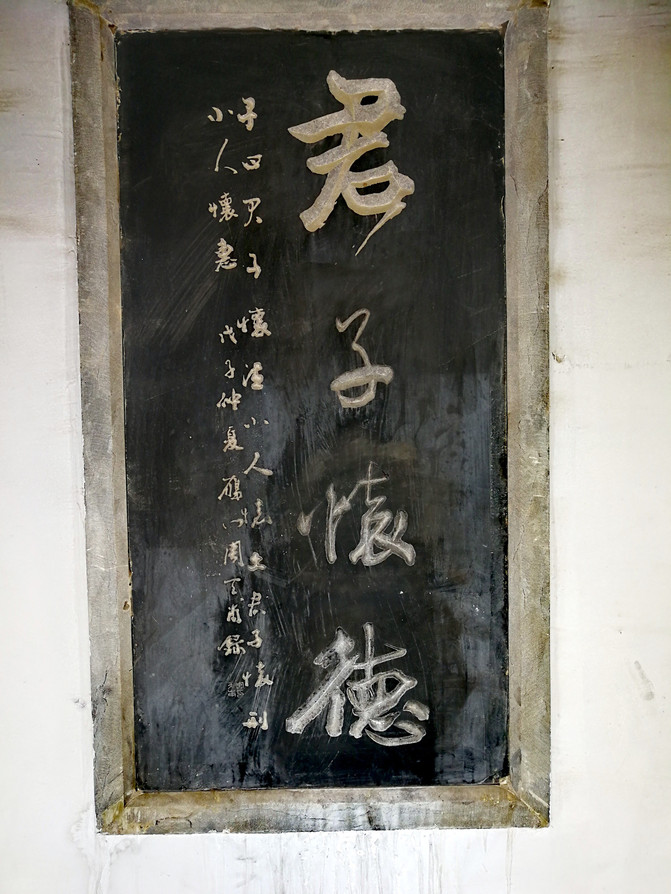 君子懷德
子曰君子懷德小人懷土君子懷刑
小人懷惠 戊子仲夏雁門周
錄